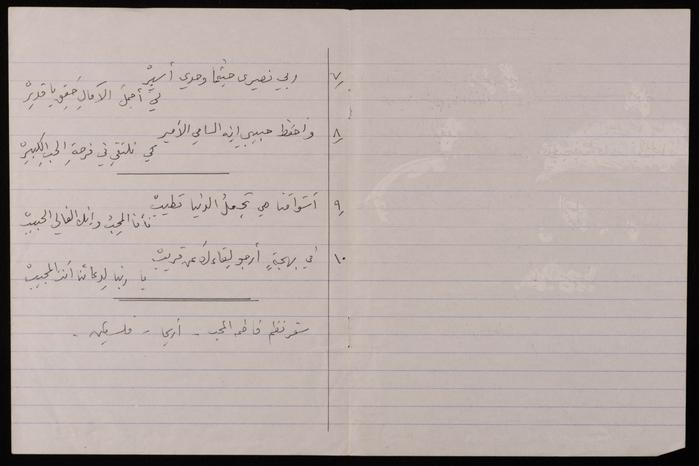 ٧/ ربي نصيري حيثما وحدي أسيرْ
لي أجملَ الآمالِ حَقِّق يا قديرْ
٨/ واحفظ حبيبي إنه السامي الأمير
كي نلتقي في فرحةِ الحبِ الكبيرْ
٩/ أشواقنا هي تجعلُ الدنيا تطيبْ
فأنا المحبُ وإنك الغالي الحبيبْ
١٠/ في بهجةٍ أرجو لقاءَكَ عن قريبْ
يا ربنا لدعائنا أنت المجيبْ
شعر نظم فاطمه المحب - أريحا - فلسطين -